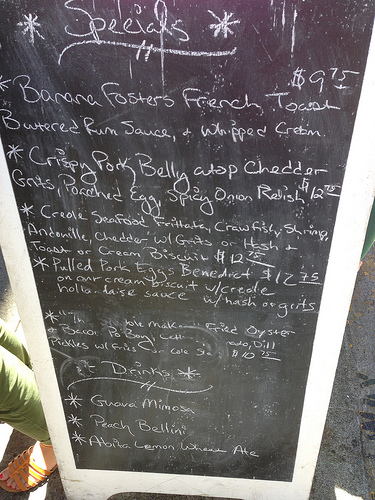 * Specials *
* Banana Fosters French Toast $9 75
Buttered Rum Sauce, + Whipped Cream
* Crispy Pork Belly atop Cheddar
Grits, Poached Egg, Spicy Onion Relish $12 75
* Creole Seafood Frittata, Crawfish, Shrimp,
Andouille, Cheddar w/ Grits or Hash +
Toast or Cream Biscuit $12 75
* Pulled Pork Eggs Benedict $12 75
on our cream biscuit w/creole
hollandaise sauce w/hash or grits
Fried Oyster
+ Bacon Po Boy, Dill
Pickles w/ Fries or Cole $10 75
* Drinks *
* Guava Mimosa
* Peach Bellini
* Abita Lemon Wheat Ale